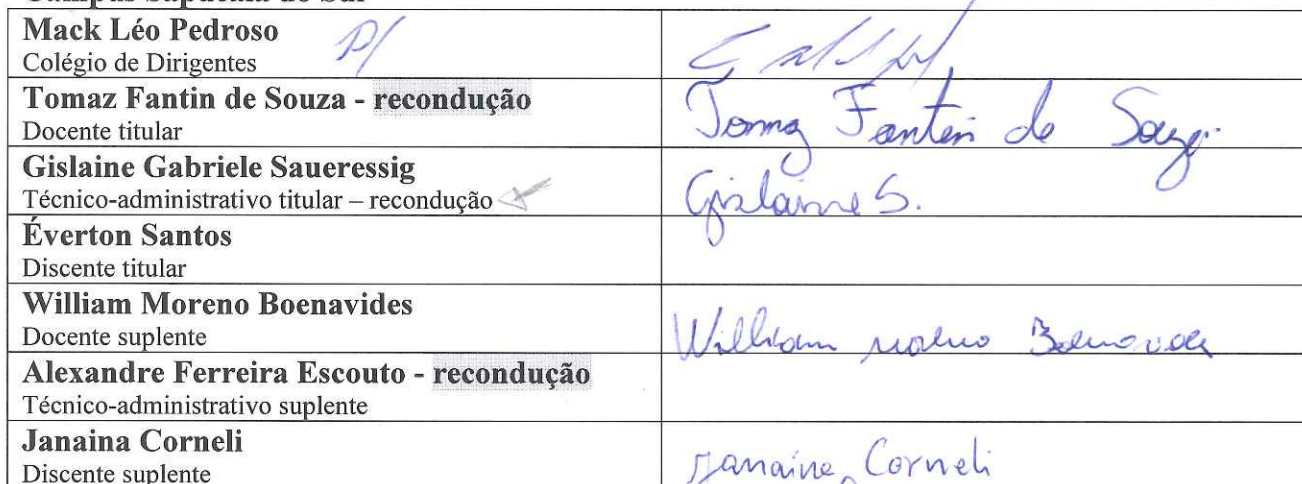 Campus Sapucaia do Sul
Mack Léo Pedroso P/
Colégio de Dirigentes
Tomaz Fantin de Souza - recondução
Docente titular
Tomaz Fantin de Souza
Gislaine Gabriele Saueressig
Técnico-administrativo titular – recondução
Gislaine S.
Éverton Santos
Discente titular
William Moreno Boenavides
Docente suplente
William Moreno Boenavides
Alexandre Ferreira Escouto - recondução
Técnico-administrativo suplente
Janaina Corneli
Discente suplente
Janaina Corneli